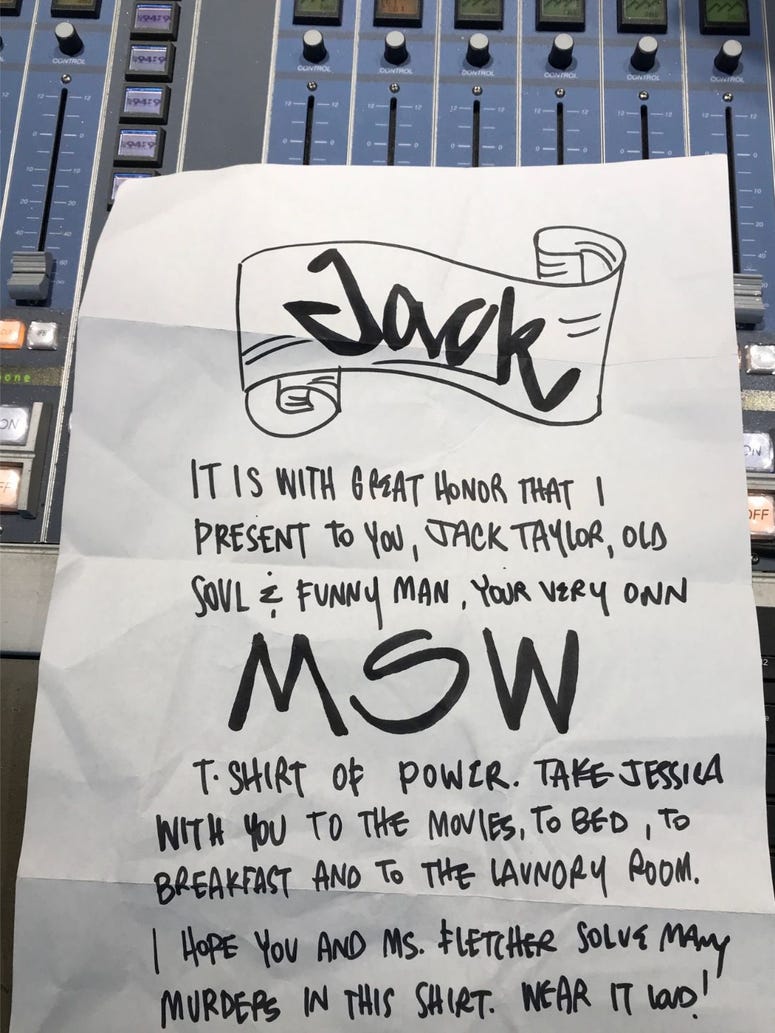 CONTROL
CONTROL CONTROL CONTROL CONTROL CONTROL CONTROL
Jack
IT IS WITH GREAT HONOR THAT I
PRESENT TO YOU, JACK TAYLOR, OLD
SOUL & FUNNY MAN, YOUR VERY OWN
MSW
T-SHIRT OF POWER. TAKE JESSICA
WITH YOU TO THE MOVIES, TO BED, TO
BREAKFAST AND TO THE LAUNDRY ROOM.
I HOPE YOU AND MS. FLETCHER SOLVE MANY
MURDERS IN THIS SHIRT. WEAR IT LOUD!
ON
ON
OFF